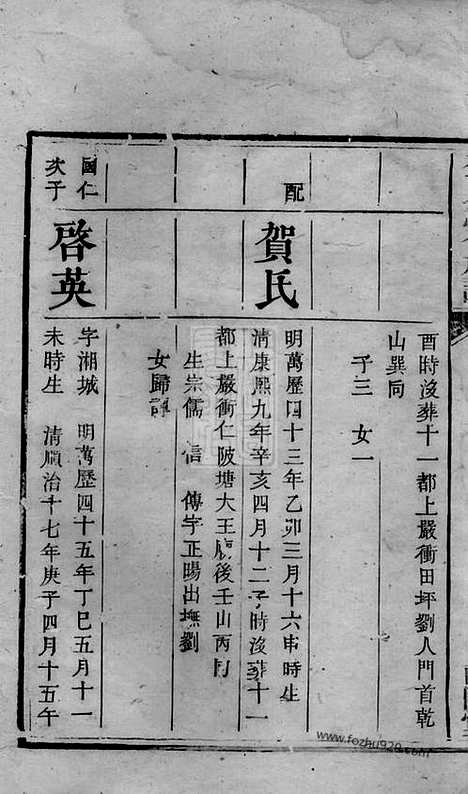 酉時沒葬十一都上嚴衝田坪劉人門首乾
山巽向
子三 女一
配
賀氏
明萬歷四十三年乙卯三月十六申時生
清康熙九年辛亥四月十二子時沒葬十一
都上嚴衝仁陂塘大王廟後壬山丙向
生崇儒 信 傳字正暘出撫劉
女歸
國仁
次子
啓英
字湘城 明萬歷四十五年丁巳五月十一
未時生 清順治十七年庚子四月十五午
www.fozhu920.com